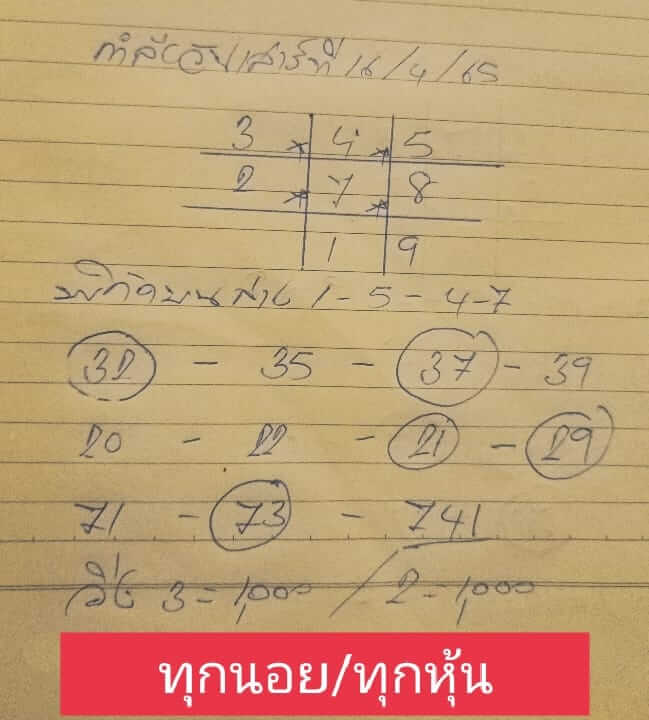 กำลังวันเสาร์ที่ 16/4/65
3 × 4 × 5
2 × 7 × 8
1 9
พิกัดบนล่าง 1-5-4-7
32 - 35 - 37 - 39
20 - 22 - 21 - 29
71 - 73 - 741
วิ่ง 3=1,000 / 2=1,000
ทุกนอย/ทุกหุ้น